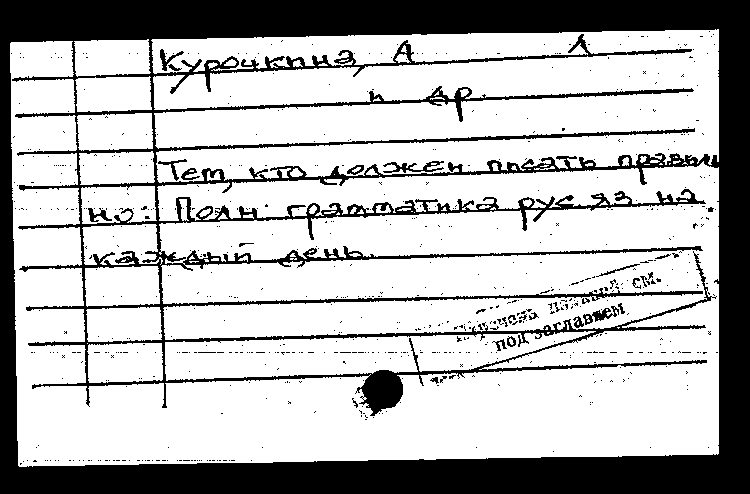 Курочкина, А Л
и др.
Тем, кто должен писать правиль
но: Полн. грамматика рус яз на
каждый день.
Перечень изданий см.
под заглавием